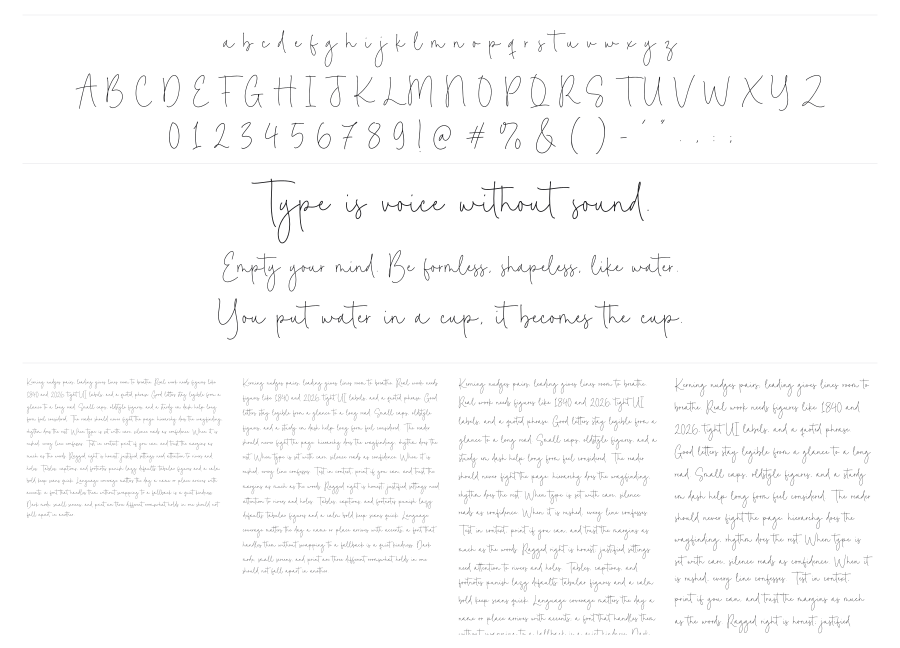 a b c d e f g h i j k l m n o p q r s t u v w x y z
A B C D E F G H I J K L M N O P Q R S T U V W X Y Z
0 1 2 3 4 5 6 7 8 9 ! @ # % & ( ) - ' " . , : ;
Type is voice without sound.
Empty your mind. Be formless, shapeless, like water.
You put water in a cup, it becomes the cup.
Kerning nudges pairs, leading gives lines room to breathe. Real work needs figures like
1840 and 2026, tight UI labels, and a quoted phrase. Good letters stay legible from a
glance to a long read. Small caps, oldstyle figures, and a sturdy en dash help long
form feel considered. The reader should never fight the page; hierarchy does the wayfinding,
rhythm does the rest. When type is set with care, silence reads as confidence. When it is
rushed, every line confesses. Test in context, print if you can, and trust the margins as
much as the words. Ragged right is honest; justified settings need attention to rivers and
holes. Tables, captions, and footnotes punish lazy defaults; tabular figures and a calm
bold keep scans quick. Language coverage matters the day a name or place arrives with
accents; a font that handles them without swapping to a fallback is a quiet kindness.
Dark mode, small screens, and print are three different rooms; what holds in one should not
fall apart in another.
Kerning nudges pairs, leading gives lines room to breathe. Real work needs
figures like 1840 and 2026, tight UI labels, and a quoted phrase. Good
letters stay legible from a glance to a long read. Small caps, oldstyle
figures, and a sturdy en dash help long form feel considered. The reader
should never fight the page; hierarchy does the wayfinding, rhythm does the
rest. When type is set with care, silence reads as confidence. When it is
rushed, every line confesses. Test in context, print if you can, and trust the
margins as much as the words. Ragged right is honest; justified settings need
attention to rivers and holes. Tables, captions, and footnotes punish lazy
defaults; tabular figures and a calm bold keep scans quick. Language
coverage matters the day a name or place arrives with accents; a font that
handles them without swapping to a fallback is a quiet kindness. Dark
mode, small screens, and print are three different rooms; what holds in one
should not fall apart in another.
Kerning nudges pairs, leading gives lines room to breathe.
Real work needs figures like 1840 and 2026, tight UI
labels, and a quoted phrase. Good letters stay legible from a
glance to a long read. Small caps, oldstyle figures, and a
sturdy en dash help long form feel considered. The reader
should never fight the page; hierarchy does the wayfinding,
rhythm does the rest. When type is set with care, silence
reads as confidence. When it is rushed, every line confesses.
Test in context, print if you can, and trust the margins as
much as the words. Ragged right is honest; justified settings
need attention to rivers and holes. Tables, captions, and
footnotes punish lazy defaults; tabular figures and a calm
bold keep scans quick. Language coverage matters the day a
name or place arrives with accents; a font that handles them
without swapping to a fallback is a quiet kindness. Dark
Kerning nudges pairs, leading gives lines room to
breathe. Real work needs figures like 1840 and
2026, tight UI labels, and a quoted phrase.
Good letters stay legible from a glance to a long
read. Small caps, oldstyle figures, and a sturdy
en dash help long form feel considered. The reader
should never fight the page; hierarchy does the
wayfinding, rhythm does the rest. When type is
set with care, silence reads as confidence. When it
is rushed, every line confesses. Test in context,
print if you can, and trust the margins as much
as the words. Ragged right is honest; justified